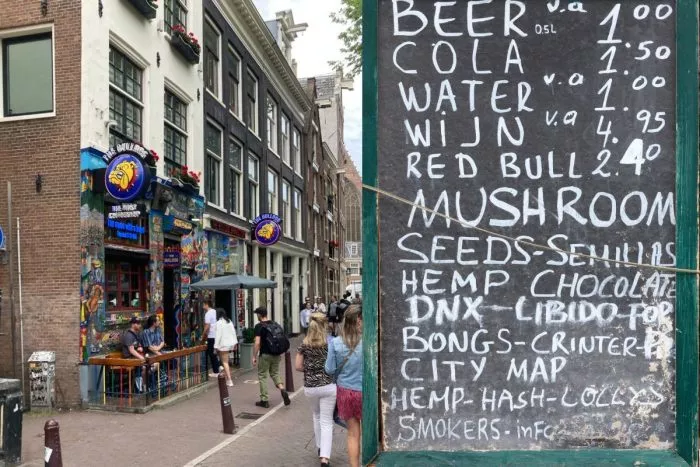 THE BULLDOG
THE FIRST
COFFEESHOP
THE BULLDOG
BEER 0.5L v.a 1.00
COLA 1.50
WATER v.a 1.00
WIJN v.a 4.95
RED BULL 2.40
MUSHROOM
SEEDS-SEMILLAS
HEMP CHOCOLATE
DNX-LIBIDO POP
BONGS-CRINTER-
CITY MAP
HEMP-HASH-LOLLYS
SMOKERS-info